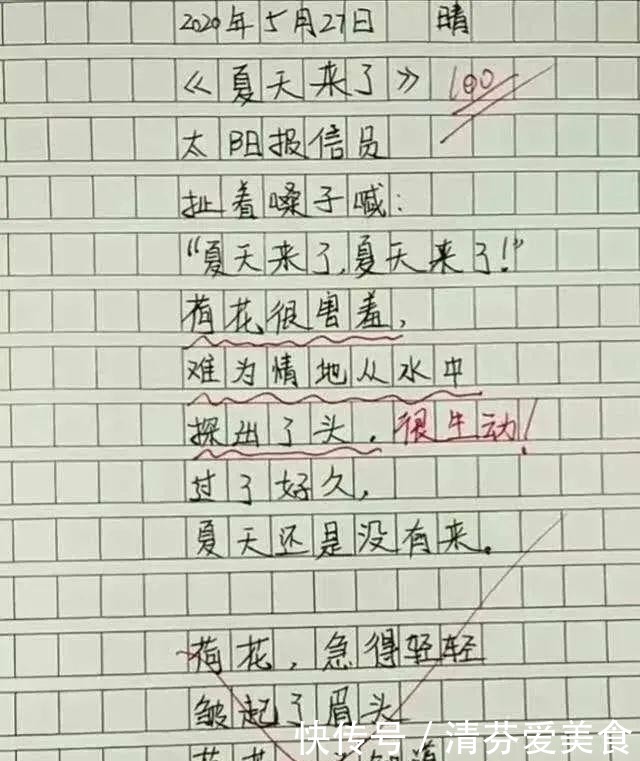 2020年5月27日 晴
《夏天来了》 100
太阳报信员
扯着嗓子喊:
“夏天来了,夏天来了!”
荷花很害羞,
难为情地从水中
探出了头。很生动!
过了好久,
夏天还是没有来。
荷花,急得轻轻
皱起了眉头
快传号/清芬爱美食